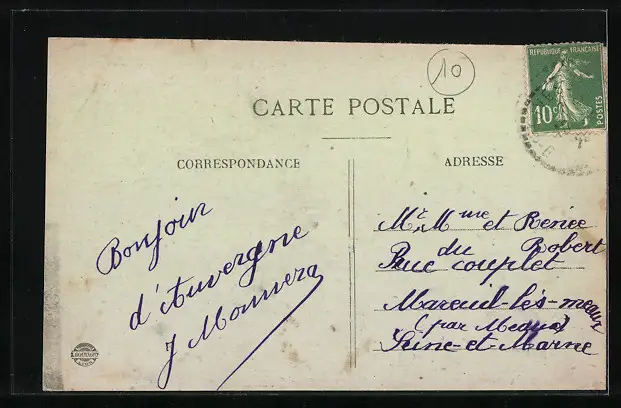 10
REPUBLIQUE FRANÇAISE
10c
POSTES
CARTE POSTALE
CORRESPONDANCE
Bonjour
d'Auvergne
J
ADRESSE
Mr, Mme et Renée
Robert
Rue du couplet
Mareuil-lès-meaux
(par Meaux)
Seine-et-Marne